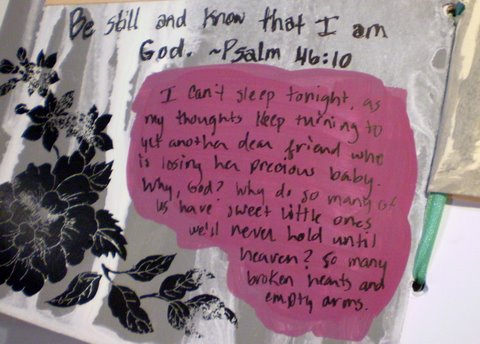 Be still and know that I am
God. ~Psalm 46:10
I can't sleep tonight, as
my thoughts keep turning to
yet another dear friend who
is losing her precious baby.
Why, God? Why do so many of
us have sweet little ones
we'll never hold until
heaven? So many
broken hearts and
empty arms.